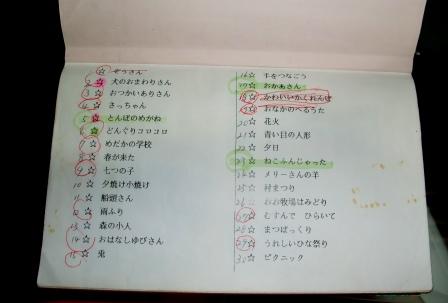 ☆ ぞうさん
2 ☆ 犬のおまわりさん
3 ☆ おつかいありさん
4 ☆ さっちゃん
5 ☆ とんぼのめがね
6 ☆ どんぐりコロコロ
7 ☆ めだかの学校
8 ☆ 春が来た
9 ☆ 七つの子
10 ☆ 夕焼け小焼け
11 ☆ 船頭さん
12 ☆ 雨ふり
13 ☆ 森の小人
14 ☆ おはなしゆびさん
15 ☆ 兎
16 ☆ 手をつなごう
17 ☆ おかあさん
18 ☆ かわいいかくれんぼ
19 ☆ おなかのへるうた
20 ☆ 花火
21 ☆ 青い目の人形
22 ☆ 夕日
23 ☆ ねこふんじゃった
24 ☆ メリーさんの羊
25 ☆ 村まつり
26 ☆ おお牧場はみどり
27 ☆ むすんで ひらいて
28 ☆ まつぼっくり
29 ☆ うれしいひな祭り
30 ☆ ピクニック